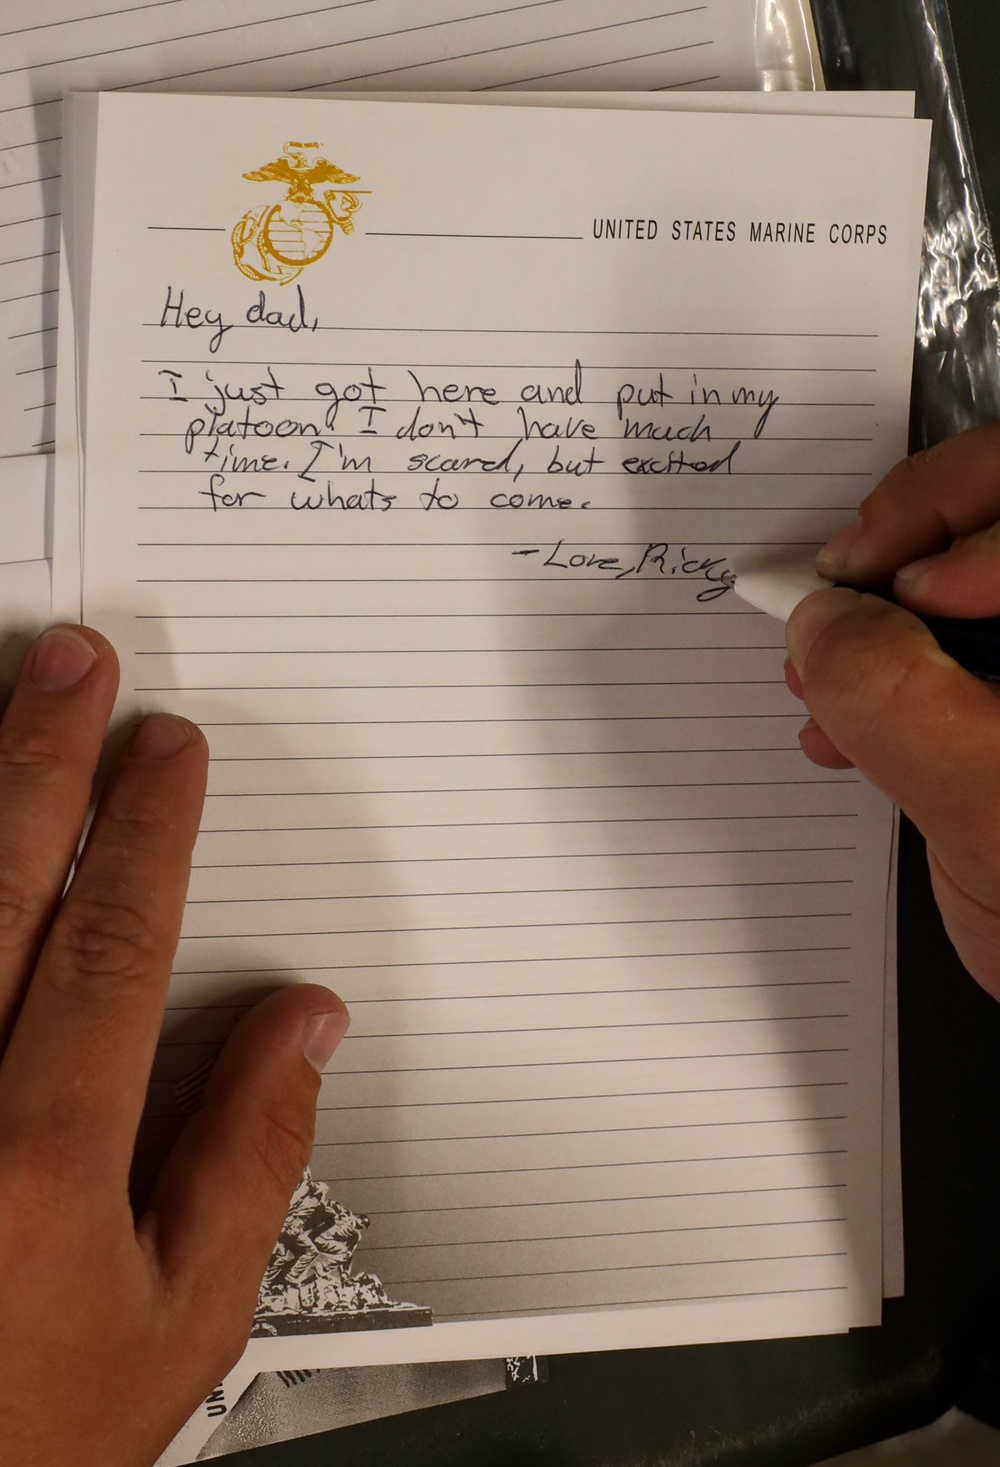 UNITED STATES MARINE CORPS
Hey dad,
I just got here and put in my
platoon. I don't have much
time. I'm scared, but excited
for whats to come.
- Love, Ricky